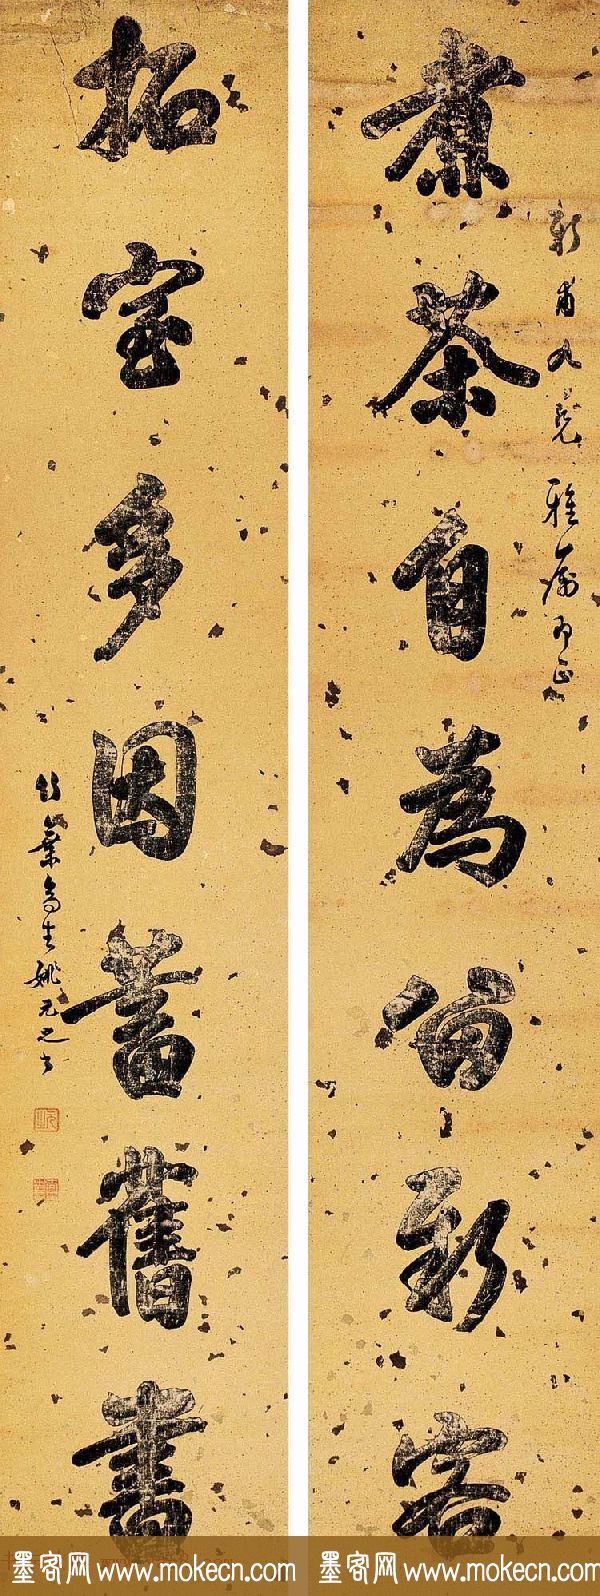 煮茶自為留新客
新甫九兄雅屬即正
拓室多因蓄舊書
竹葉亭生姚元之書
墨客网 www.mokecn.com
墨客网 www.mokecn.com